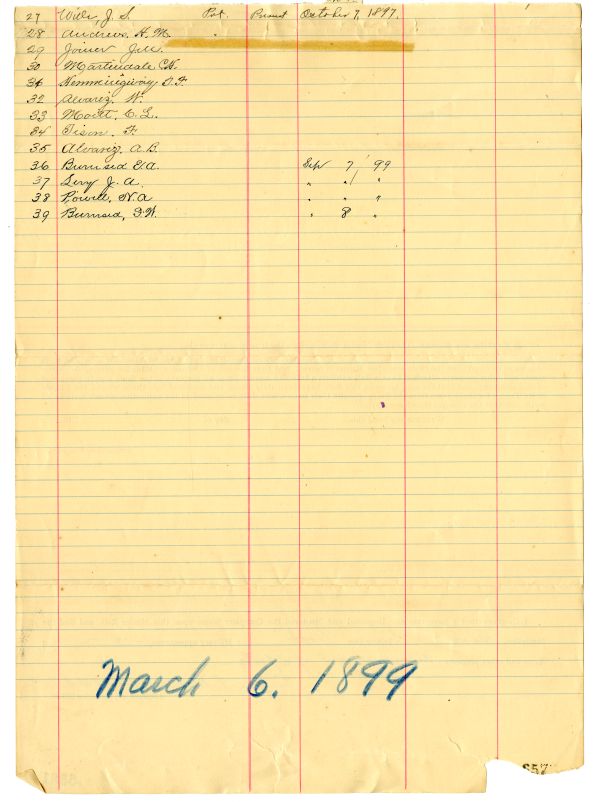 27 Wils, J. S. Pvt. Present October 7, 1897.
28 Andrews, H. M. "
29 Joiner J.M.
30 Martindale C.N.
31 Hemmingway T.F.
32 Alvarez, W.
33 Moett, C. L.
34 Tison, F.
35 Alvariz, A. B.
36 Burnsed E.A. Sep 7 '99
37 Levy J. A. " " "
38 Powell, N. A " " "
39 Burnsed, G.W. " 8 "
March 6. 1899